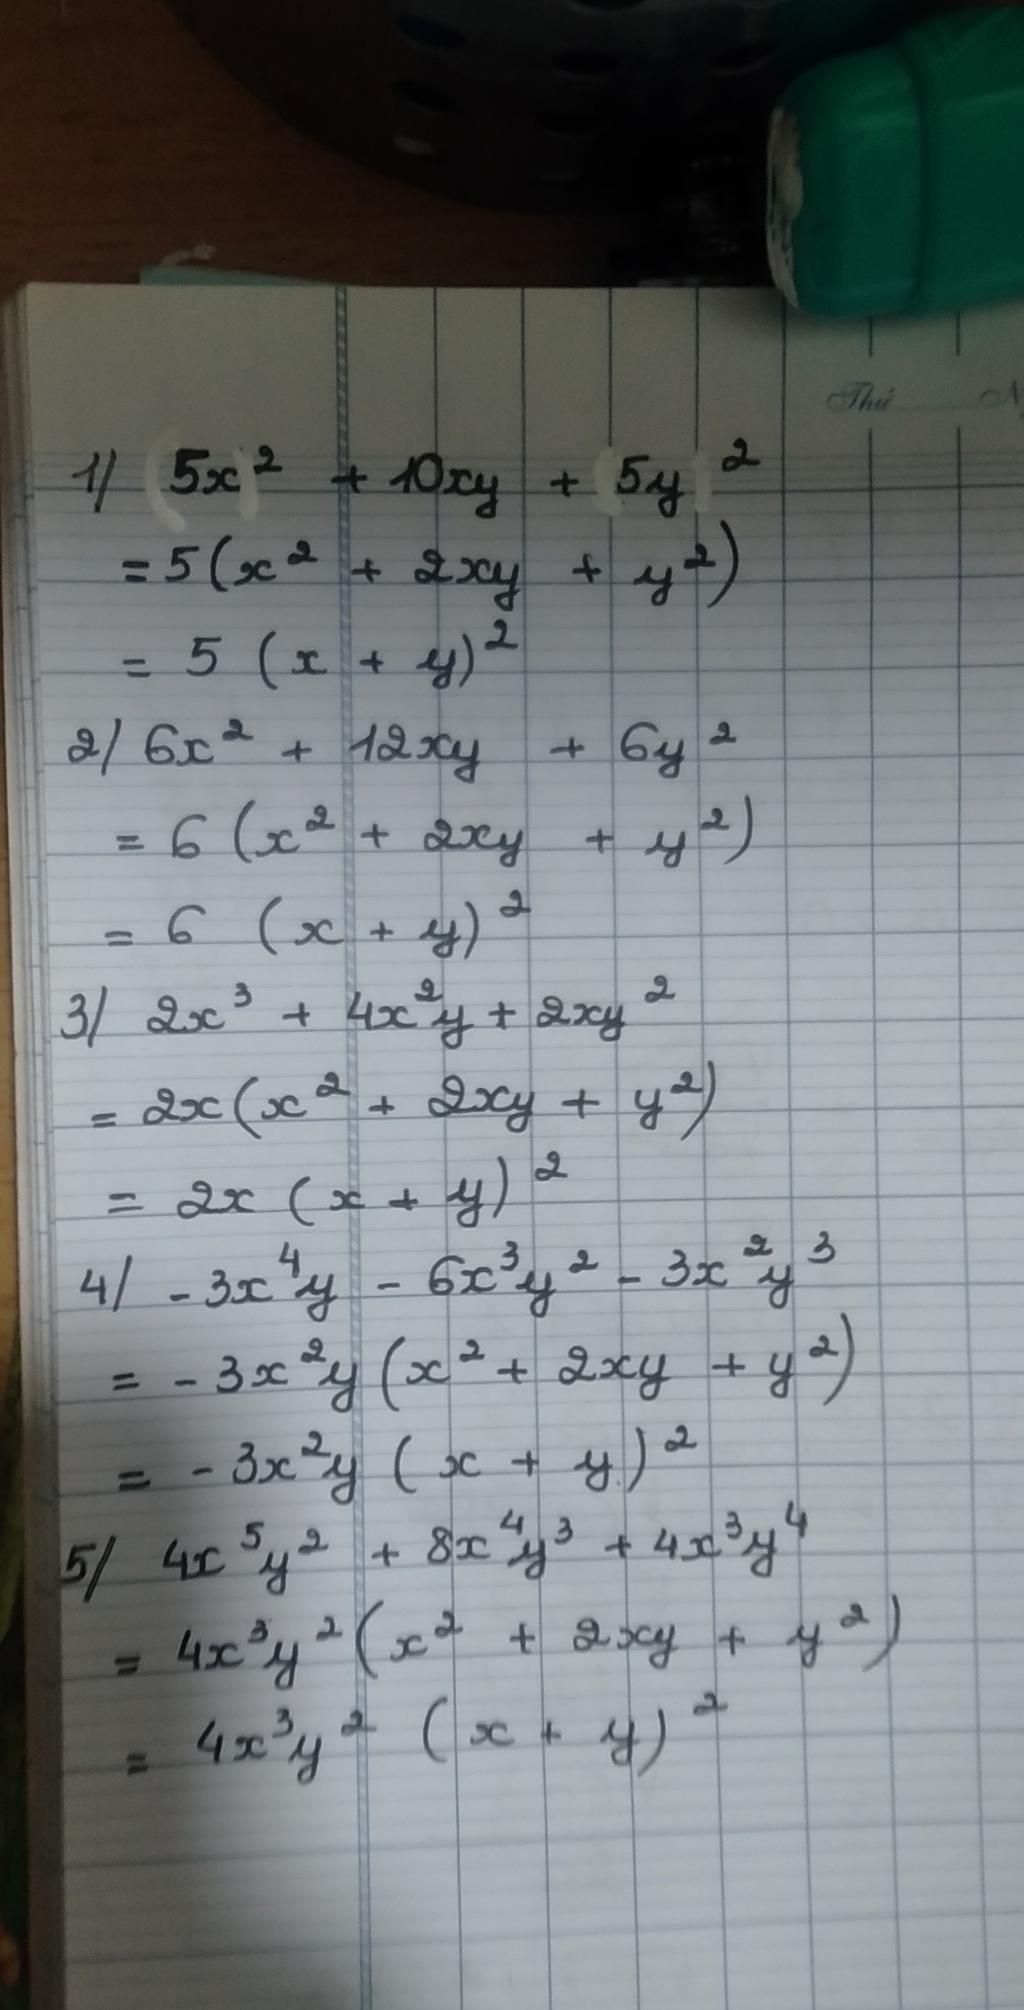 Thứ
1/ 5x² + 10xy + 5y²
= 5(x² + 2xy + y²)
= 5 (x + y)²
2/ 6x² + 12xy + 6y²
= 6 (x² + 2xy + y²)
= 6 (x + y)²
3/ 2x³ + 4x²y + 2xy²
= 2x(x² + 2xy + y²)
= 2x (x + y)²
4/ -3x⁴y - 6x³y² - 3x²y³
= -3x²y (x² + 2xy + y²)
= -3x²y (x + y)²
5/ 4x⁵y² + 8x⁴y³ + 4x³y⁴
= 4x³y² (x² + 2xy + y²)
= 4x³y² (x + y)²